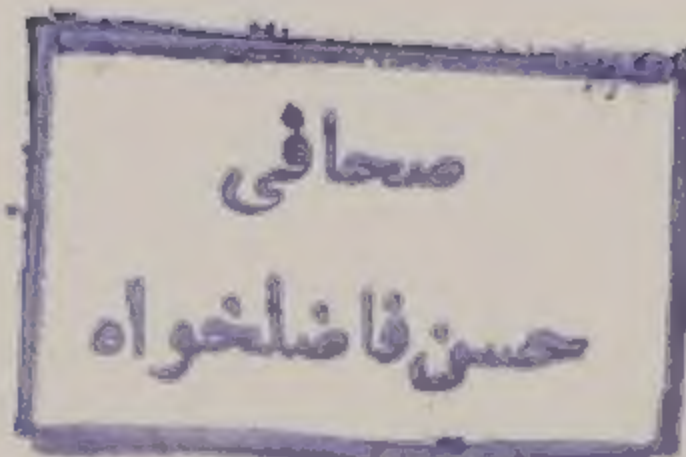 صحافی
حسن فاضلخواه